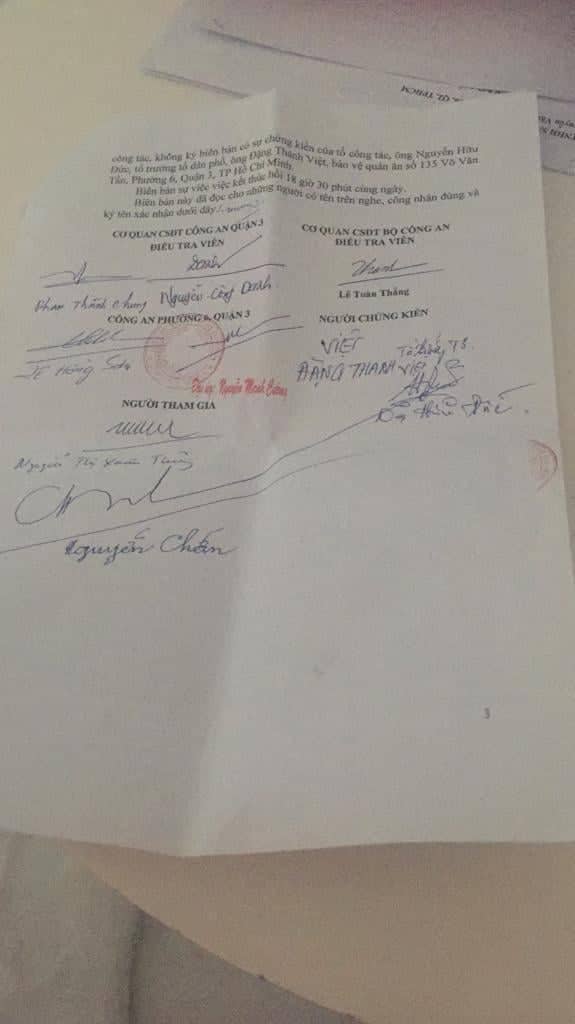 công tác, không ký biên bản có sự chứng kiến của tổ công tác, ông Nguyễn Hữu
Đức, tổ trưởng tổ dân phố, ông Đặng Thành Việt, bảo vệ quán ăn số 135 Võ Văn
Tần, Phường 6, Quận 3, TP Hồ Chí Minh.
Biên bản sự việc việc kết thúc hồi 18 giờ 30 phút cùng ngày.
Biên bản này đã đọc cho những người có tên trên nghe, công nhân đúng và
ký tên xác nhận dưới đây./.
CƠ QUAN CSĐT CÔNG AN QUẬN 3
ĐIỀU TRA VIÊN
CƠ QUAN CSĐT BỘ CÔNG AN
ĐIỀU TRA VIÊN
Phan Thành Chung Nguyễn Công Danh
Lê Toàn Thắng
CÔNG AN PHƯỜNG 6, QUẬN 3
NGƯỜI CHỨNG KIẾN
VIỆT
ĐẶNG THANH VIỆT
Đại úy: Nguyễn Mạnh Cường
NGƯỜI THAM GIA
Nguyễn Thị Xuân
Nguyễn Chấn
3